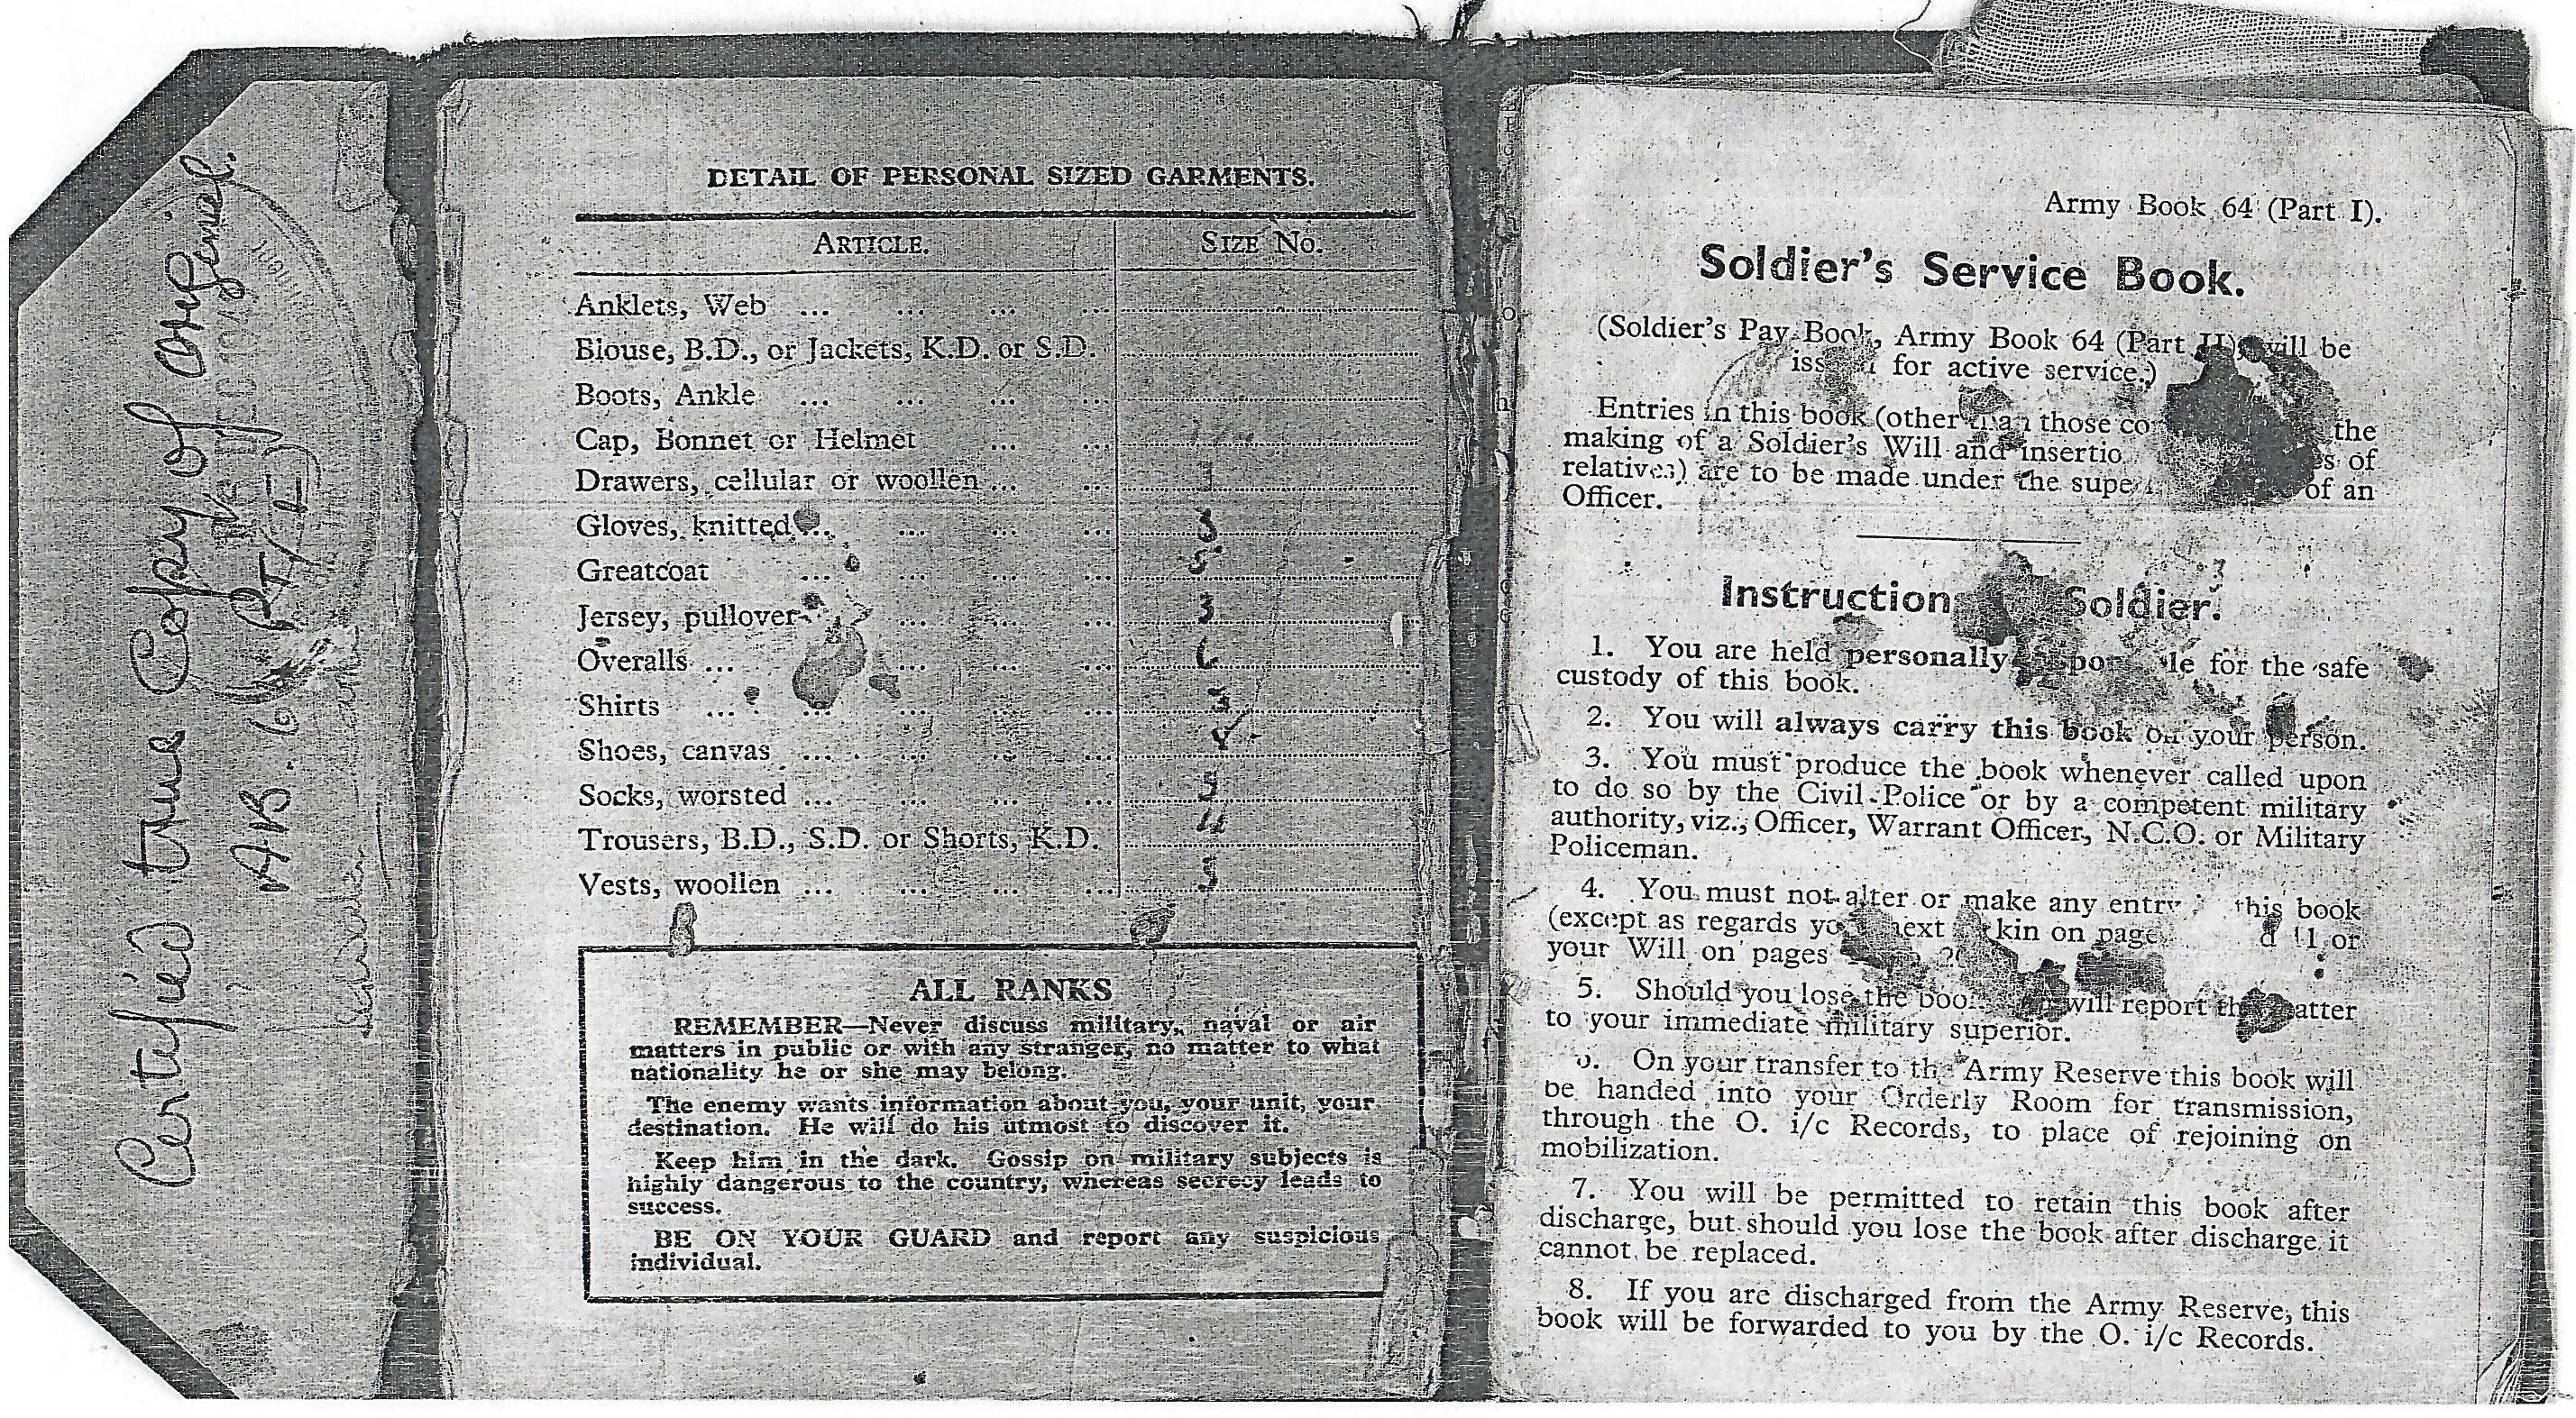 Certified true Copy of original.
A.B. 6
DETAIL OF PERSONAL SIZED GARMENTS.
ARTICLE. SIZE No.
Anklets, Web ... ... ... ...
Blouse, B.D., or Jackets, K.D. or S.D.
Boots, Ankle ... ... ... ...
Cap, Bonnet or Helmet ... ...
Drawers, cellular or woollen ... ...
Gloves, knitted ... ... ... ...
Greatcoat ... ... ... ...
Jersey, pullover ... ... ... 3
Overalls ... ... ... ... ... 6
Shirts ... ... ... ... ... 3
Shoes, canvas ... ... ... ...
Socks, worsted ... ... ... ...
Trousers, B.D., S.D. or Shorts, K.D. 4
Vests, woollen ... ... ... ...
ALL RANKS
REMEMBER—Never discuss military, naval or air
matters in public or with any stranger, no matter to what
nationality he or she may belong.
The enemy wants information about you, your unit, your
destination. He will do his utmost to discover it.
Keep him in the dark. Gossip on military subjects is
highly dangerous to the country, whereas secrecy leads to
success.
BE ON YOUR GUARD and report any suspicious
individual.
Army Book 64 (Part I).
Soldier's Service Book.
(Soldier's Pay Book, Army Book 64 (Part II), will be
for active service.)
Entries in this book (other than those the
making of a Soldier's Will and of
relatives) are to be made under the of an
Officer.
Instruction Soldier.
1. You are held personally for the safe
custody of this book.
2. You will always carry this book on your person.
3. You must produce the book whenever called upon
to do so by the Civil Police or by a competent military
authority, viz., Officer, Warrant Officer, N.C.O. or Military
Policeman.
4. You must not alter or make any entry this book
(except as regards next kin on 11 or
your Will on pages
5. Should you lose the will report
to your immediate military superior.
On your transfer to the Army Reserve this book will
be handed into your Orderly Room for transmission,
through the O. i/c Records, to place of rejoining on
mobilization.
7. You will be permitted to retain this book after
discharge, but should you lose the book after discharge it
cannot be replaced.
8. If you are discharged from the Army Reserve, this
book will be forwarded to you by the O. i/c Records.